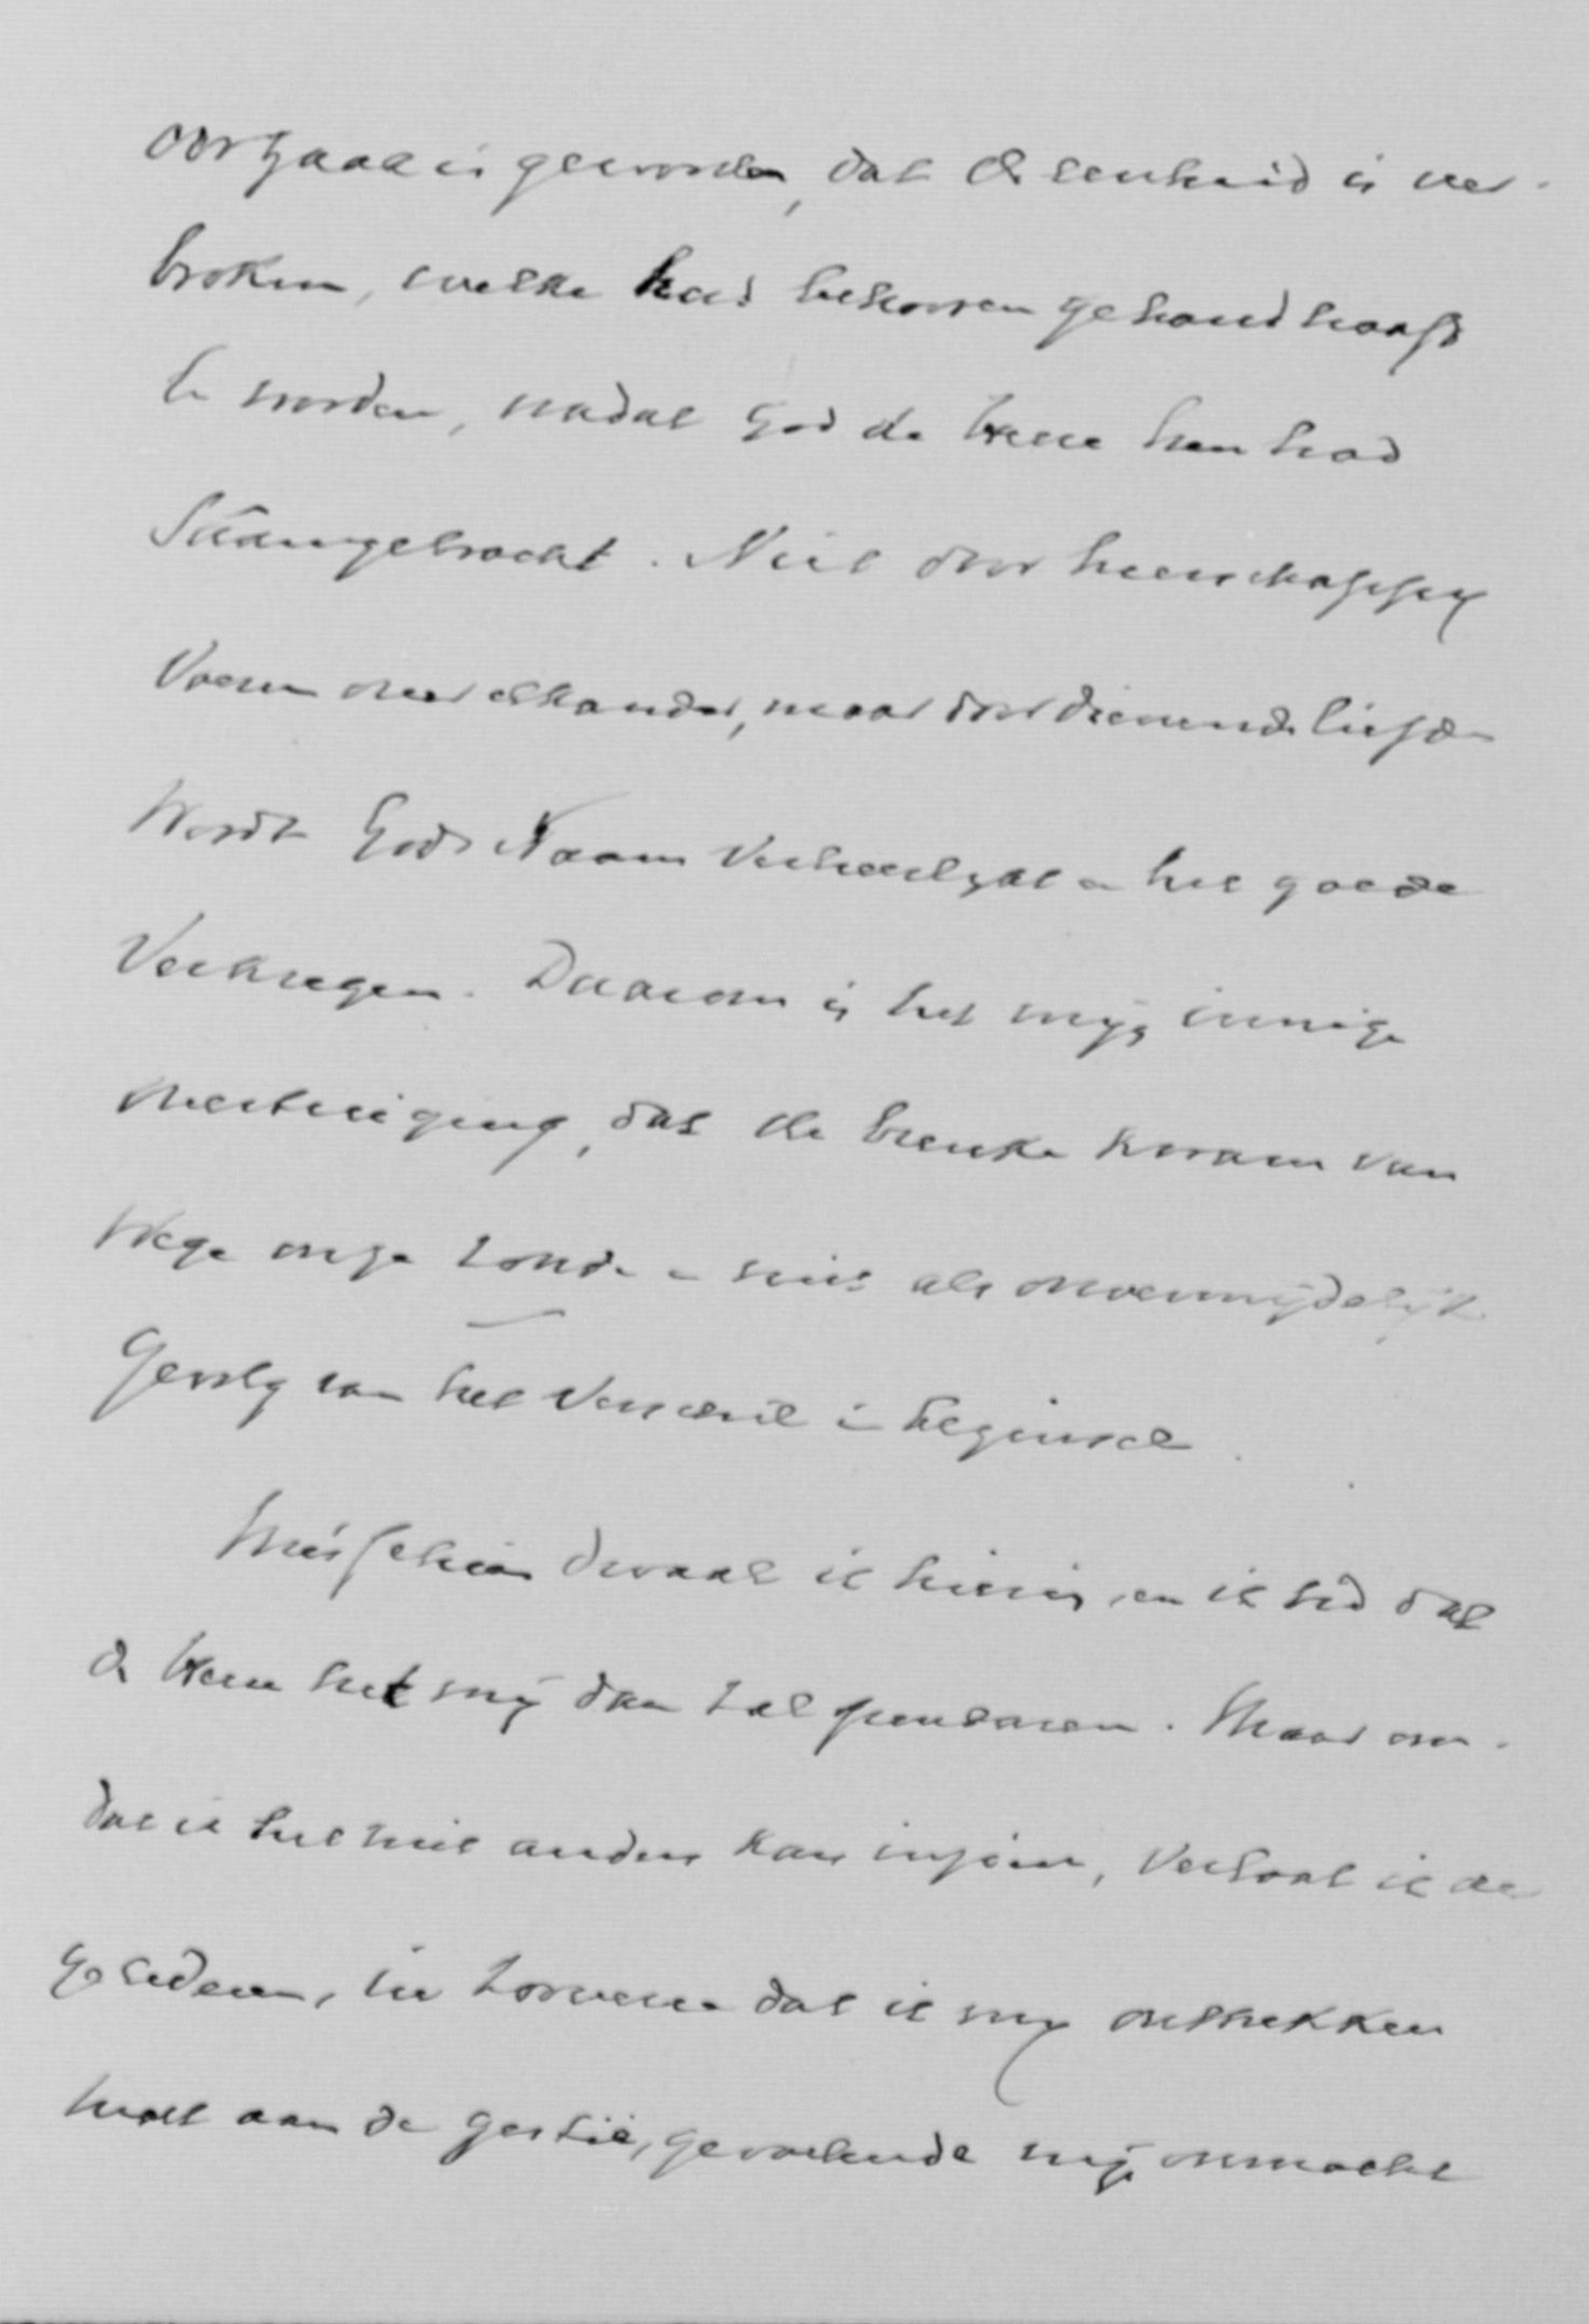 oorzaak is geworden, dat de eenheid is ver-
broken, welke had behooren gehandhaafd
te worden, nadat God de Heere hen had
saamgebracht. Niet door heerschappij
voeren over elkander, maar door dienende liefde
wordt Gods Naam verheerlijkt en het goede
verkregen. Daarom is het mijn innige
overtuiging, dat de breuke kwam van
wege onze zonde en niet als onvermijdelijk
gevolg van het verschil in beginsel.
Misschien dwaal ik hierin, en ik bid dat
de Heere het mij dan zal openbaren. Maar om-
dat ik het niet anders kan inzien, verlaat ik de
gelederen, in zooverre dat ik mij onttrekken
moet aan de gestie, gevoelende mijn onmacht